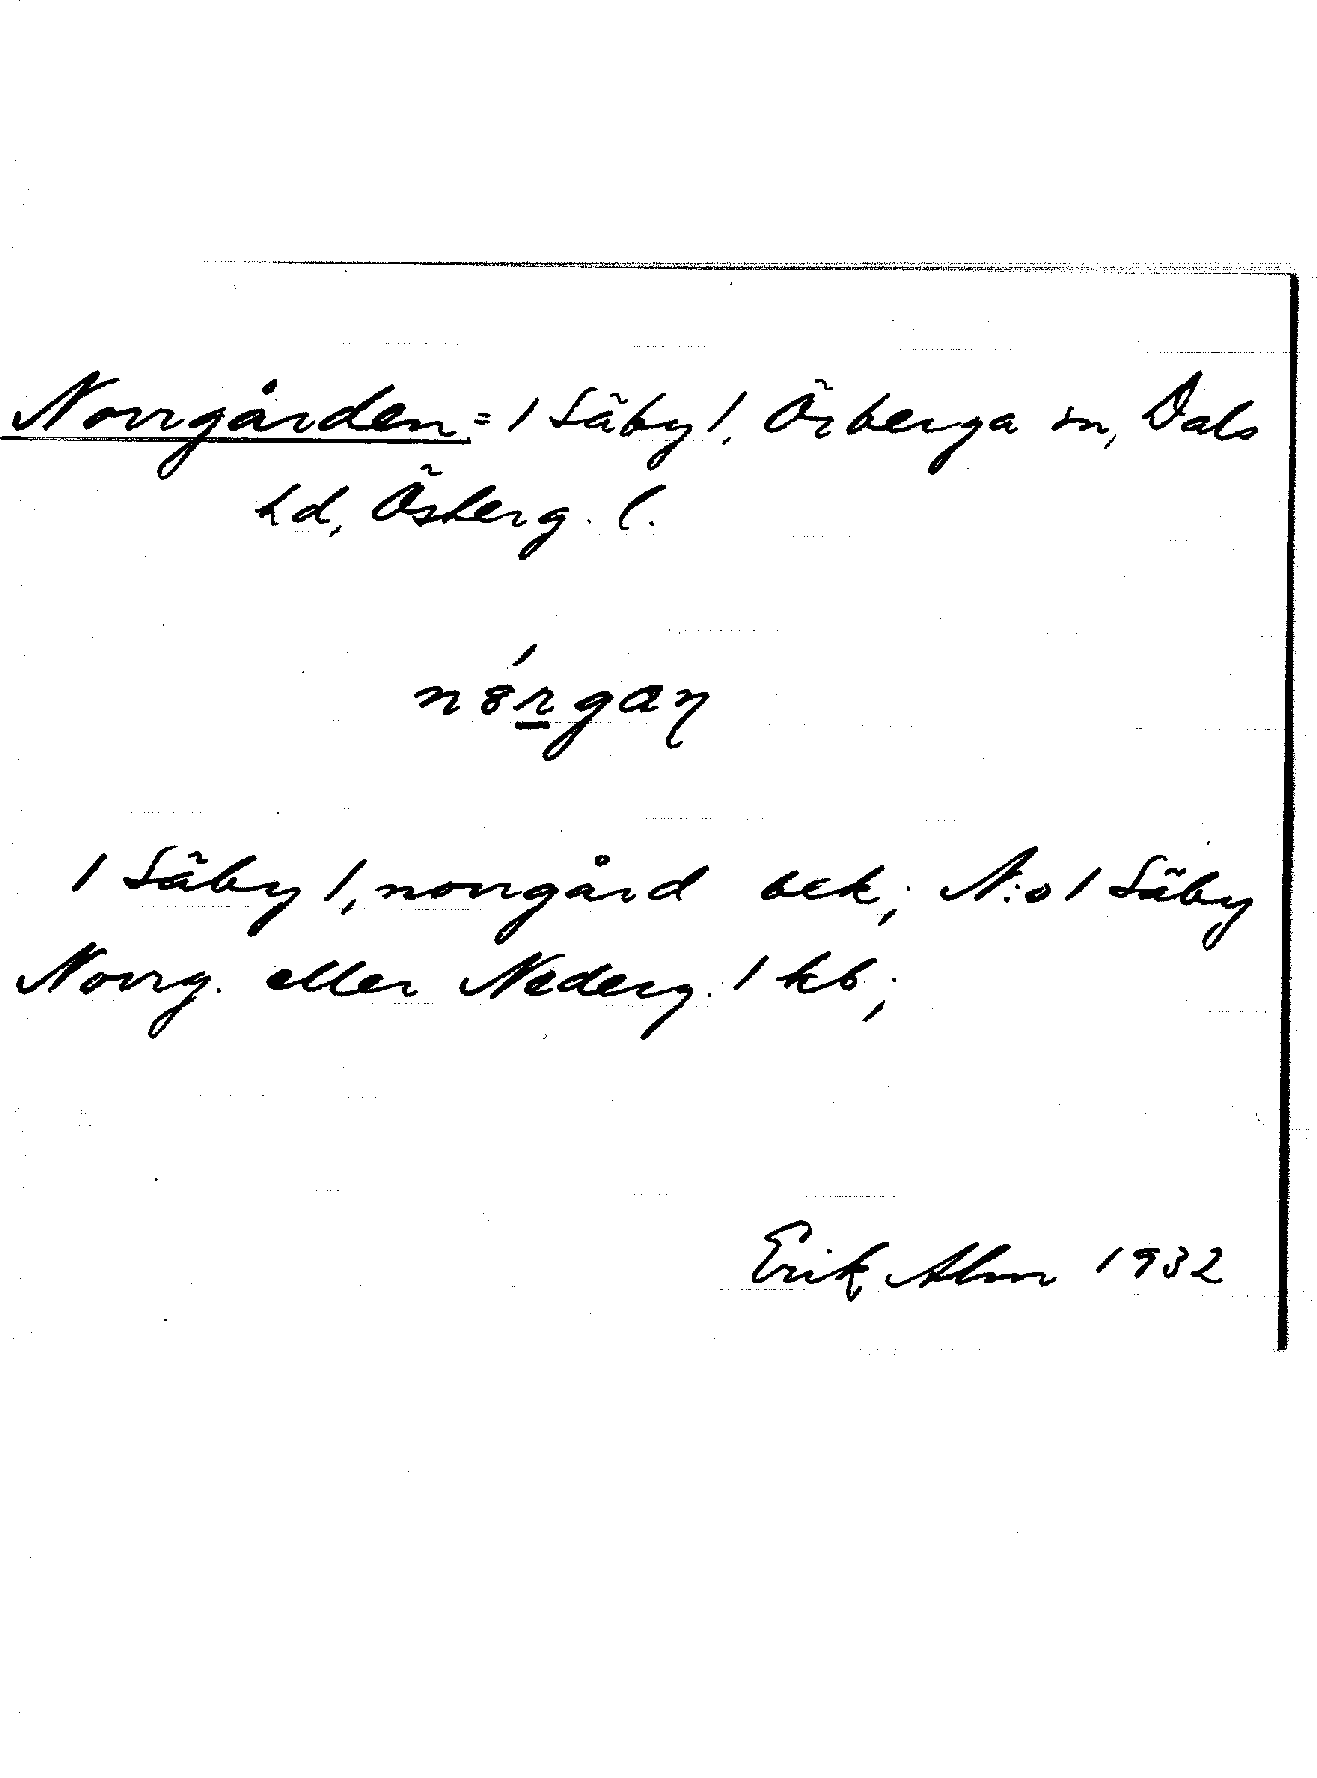 Norrgården = 1 Säby 1, Örberga sn, Dals
hd, Österg. l.
nørgaɳ
1 Säby 1, norrgård bek; N:o 1 Säby
Norrg. eller Nederg. 1 kb;
Erik Alm 1932